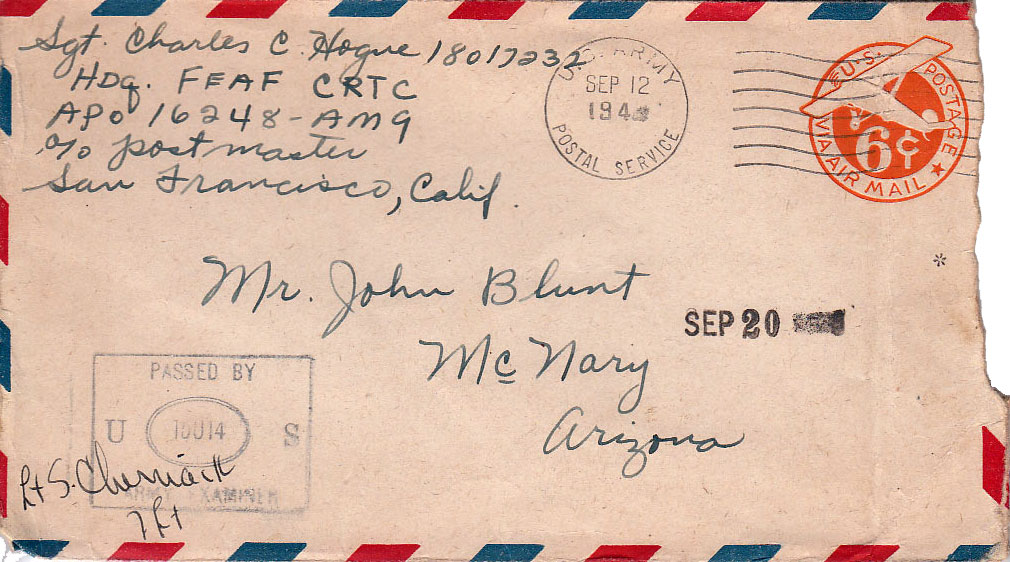 Sgt. Charles C. Hogue 18017232
Hdq. FEAF CRTC
APO 16248-AMG
c/o postmaster
San Francisco, Calif.
U.S. ARMY
SEP 12
194
POSTAL SERVICE
U.S. POSTAGE
6¢
VIA AIR MAIL
Mr. John Blunt
McNary
Arizona
SEP 20
*
PASSED BY
U S
ARMY EXAMINER
Lt S.